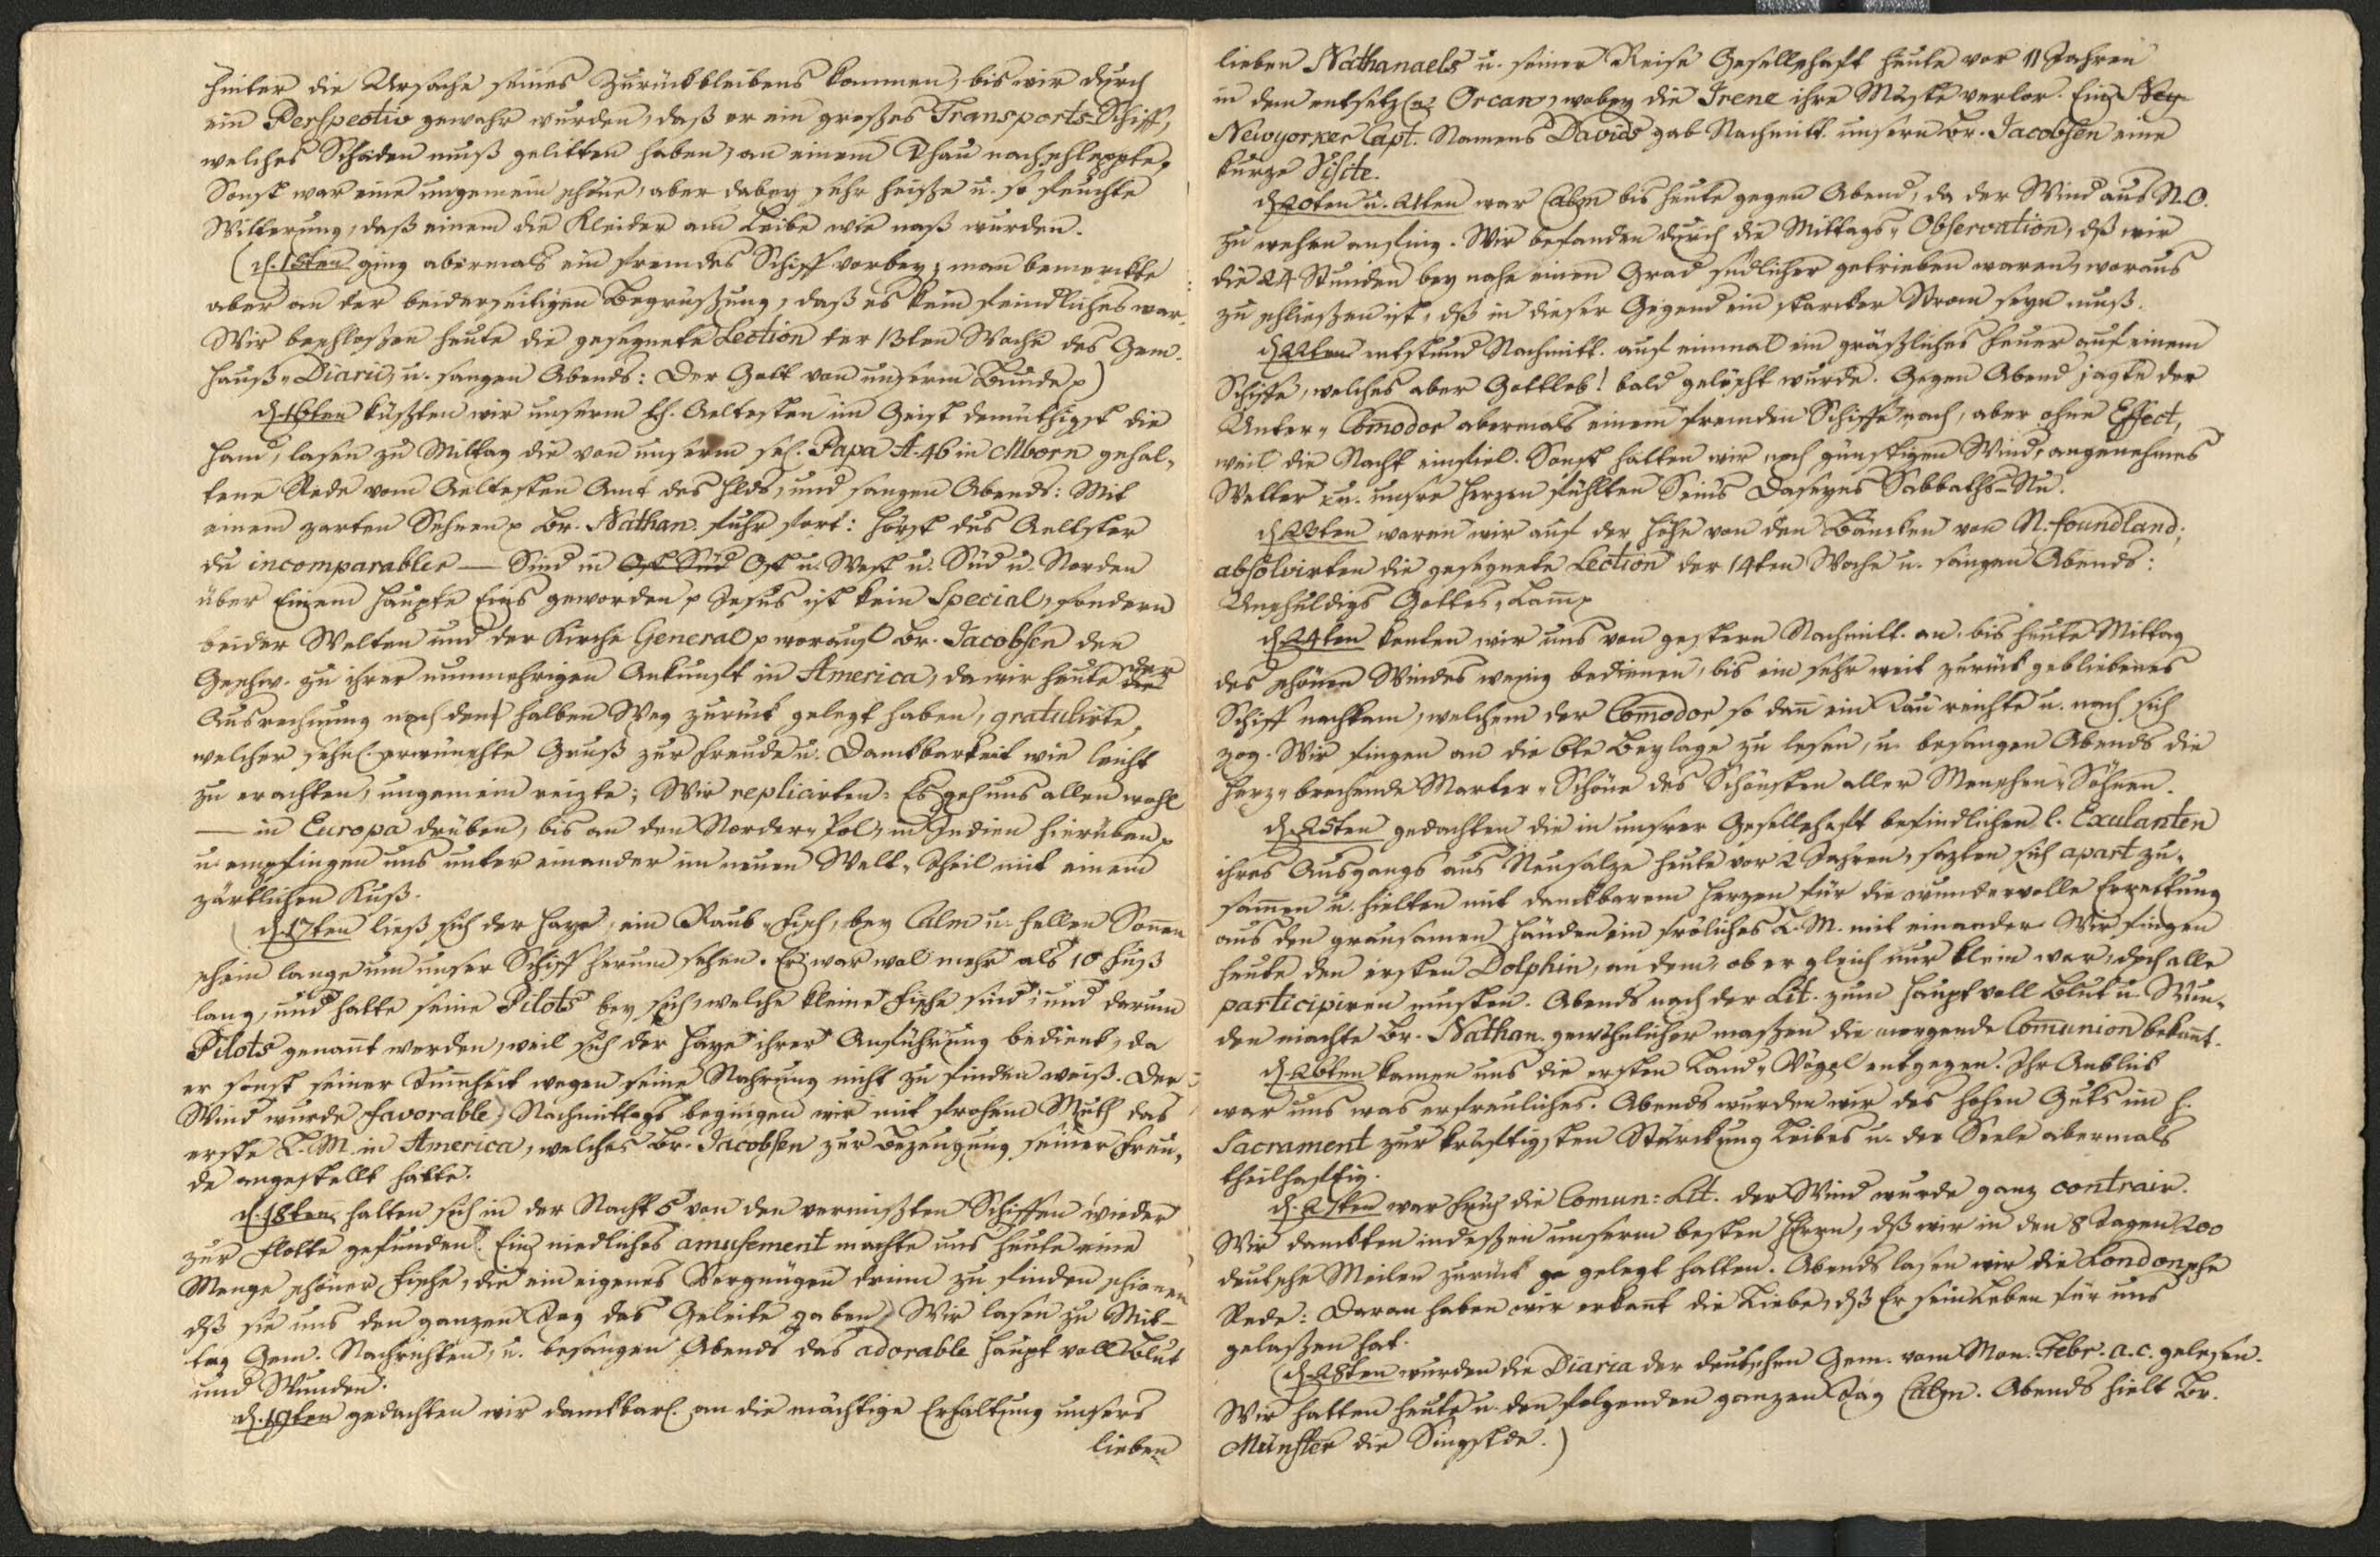 hinter die Ursache seines Zurückbleibens kommen, bis wir durch
ein Perspectiv gewahr wurden, daß er ein großes Transports-Schiff,
welches Schaden muß gelitten haben, an einem Thau nachschleppte.
Sonst war eine ungemein schöne, aber dabey sehr heiße u. so feuchte
Witterung, daß einem die Kleider am Leibe wie naß wurden.
(d. 15ten ging abermals ein fremdes Schiff vorbey; man bemerckte
aber an der beiderseitigen Begrüßung, daß es kein feindliches war.
Wir beschloßen heute die gesegnete Lection der 13ten Woche des Gem.
Hauß-Diarii, u. sangen Abends: Der Gott von unserm Bunde p)
d. 16ten küßten wir unserm h. Aeltesten im Geist demüthigst die
Hand, lasen zu Mittag die von unserm sel. Papa A. 46 in Mborn gehal-
tene Rede vom Aeltesten Amt des Hlds, und sangen Abends: Mit
einem zarten Sehnen p Br. Nathan. fuhr fort: Hörst dus Aeltster
du incomparabler — Sind in Ost Süd Ost u. West u. Süd u. Norden
über Einem Haupte Eins geworden p Jesus ist kein Special, sondern
beider Welten und der Kirche General p worauf Br. Jacobsen den
Geschw. zu ihrer nunmehrigen Ankunft in America, da wir heute der die
Ausrechnung nach den halben Weg zurück gelegt haben, gratulirte,
welcher sehnl. erwünschte Gruß zur Freude u. Danckbarkeit wie leicht
zu erachten, ungemein reizte; Wir replicirten: Es geh uns allen wohl
— in Europa drüben, bis an den Norder-Pol, in Indien hierüben p
u. empfingen uns unter einander im neuen Welt-Theil mit einem
zärtlichen Kuß.
d. 17ten ließ sich der Haye, ein Raub-Fisch, bey Calm u. hellen Sonnen
schein lange um unser Schiff herum sehen. Er war wol mehr als 10 Fuß
lang, und hatte seine Pilots bey sich, welche kleine Fische sind, und darum
Pilots genant werden, weil sich der Haye ihrer Anführung bedient, da
er sonst seiner Dumheit wegen seine Nahrung nicht zu finden weiß. Der
Wind wurde favorable, Nachmittags begingen wir mit frohem Muth das
erste L. M. in America, welches Br. Jacobsen zur Bezeugung seiner Freu-
de angestellt hatte.
d. 18ten hatten sich in der Nacht 5 von den vermißten Schiffen wieder
zur Flotte gefunden. Ein niedliches amusement machte uns heute eine
Menge schöner Fische, die ein eigenes Vergnügen drinn zu finden schienen
dß sie uns den ganzen Tag das Geleite gaben. Wir lasen zu Mit-
tag Gem. Nachrichten, u. besangen Abends das adorable Haupt voll Blut
und Wunden.
d. 19ten gedachten wir danckbarl. an die mächtige Erhaltung unsers
lieben
lieben Nathanaels u. seiner Reise Gesellschaft heute vor 11 Jahren
in dem entsetzl. Orcan, wobey die Irene ihre Maste verlor. Ein Ney
Newyorker Capt. Namens Davids gab Nachmitt. unserm Br. Jacobsen eine
kurze Visite.
d. 20ten u. 21ten war Calm bis heute gegen Abend, da der Wind aus N. O.
zu wehen anfing. Wir befanden durch die Mittags-Observation, dß wir
die 24 Stunden bey nahe einen Grad südlicher getrieben waren, woraus
zu schließen ist, dß in dieser Gegend ein starcker Strom seyn muß.
d. 22ten entstund Nachmitt. auf einmal ein gräßliches Feuer auf einem
Schiffe, welches aber Gottlob! bald gelöscht wurde. Gegen Abend jagte der
Unter-Comodor abermals einem fremden Schiffe nach, aber ohne Effect,
weil die Nacht einfiel. Sonst hatten wir noch günstigen Wind, angenehmes
Wetter u. unsre Herzen fühlten Seins Daseyns Sabbaths-Ru.
d. 23ten waren wir auf der Höhe von den Bäncken von N. foundland;
absolvirten die gesegnete Lection der 14ten Woche u. sangen Abends:
Unschuldigs Gottes-Lamm p
d. 24ten konten wir uns von gestern Nachmitt. an bis heute Mittag
des schönen Windes wenig bedienen, bis ein sehr weit zurück gebliebenes
Schiff nachkam, welchem der Comodor so dan ein Tau reichte u. nach sich
zog. Wir fingen an die 6te Beylage zu lesen, u. besangen Abends die
Herz-brechende Marter-Schöne des Schönsten aller Menschen-Söhnen.
d. 25ten gedachten die in unsrer Gesellschaft befindlichen l. Exulanten
ihres Ausgangs aus Neusalze heute vor 2 Jahren, sezten sich apart zu-
samen u. hielten mit danckbarem Herzen für die wundervolle Errettung
aus den grausamen Händen ein fröliches L. M. mit einander. Wir fingen
heute den ersten Dolphin, an dem, ob er gleich nur klein war, doch alle
participiren musten. Abends nach der Lit. zum Haupt voll Blut u. Wun-
den machte Br. Nathan. gewöhnlicher maßen die morgende Comunion bekant.
d. 26ten kamen uns die ersten Land-Vögel entgegen. Ihr Anblick
war uns was erfreuliches. Abends wurden wir des hohen Guts im h.
Sacrament zur kräftigsten Stärckung Leibes u. der Seele abermals
theilhaftig.
d. 27ten war früh die Comun: Lit. Der Wind wurde ganz contrair.
Wir danckten indeßen unserm besten HErrn, dß wir in den 8 Tagen 200
deutsche Meilen zurück ge gelegt hatten. Abends lasen wir die Londonsche
Rede: Daran haben wir erkant die Liebe, dß Er sein Leben für uns
gelaßen hat.
(d. 28ten wurden die Diaria der deutschen Gem. vom Mon. Febr. a. c. gelesen.
Wir hatten heute u. den folgenden ganzen Tag Calm. Abends hielt Br.
Münster die Singstde.)